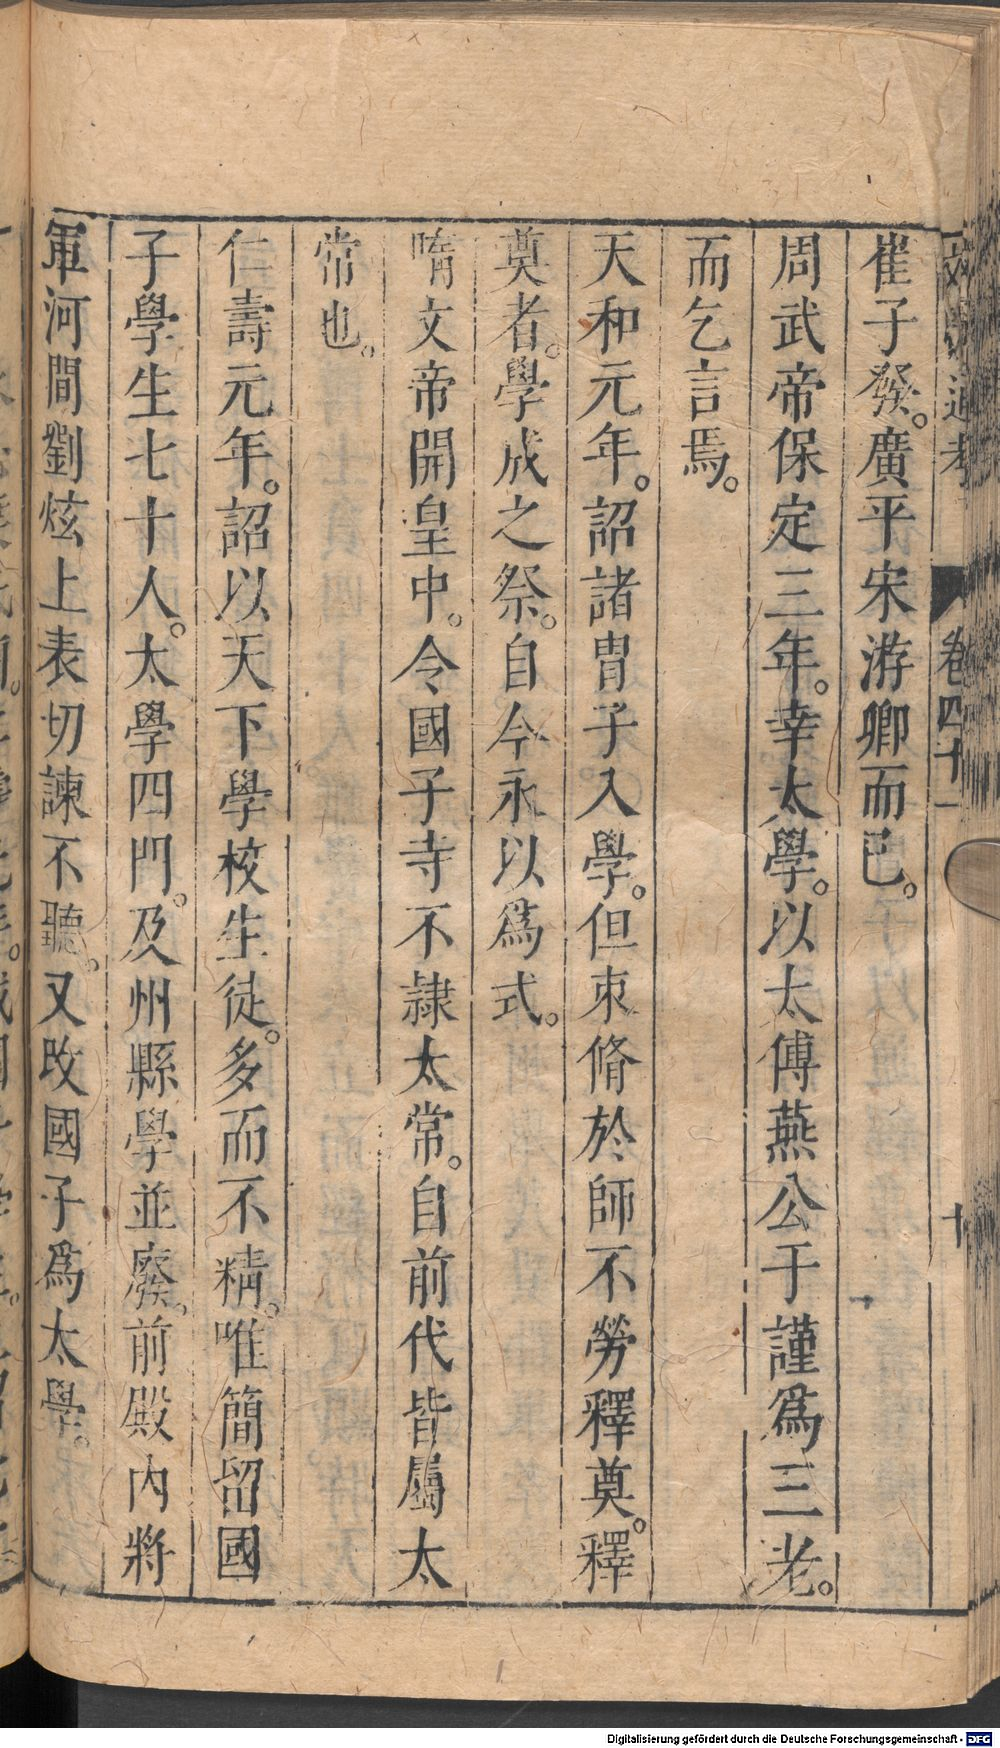 崔子發。廣平宋游卿而已。
周武帝保定三年。幸太學。以太傅燕公于謹爲三老。
而乞言焉。
天和元年。詔諸胄子入學。但束脩於師不勞釋奠。釋
奠者。學成之祭。自今永以爲式。
隋文帝開皇中。令國子寺不隷太常。自前代皆屬太
常也。
仁壽元年。詔以天下學校生徒。多而不精。唯簡留國
子學生七十人。太學四門。及州縣學並廢。前殿內將
軍河間劉炫上表切諫不聽。又改國子爲太學。
通考
卷四十一
十
Digitalisierung gefördert durch die Deutsche Forschungsgemeinschaft - DFG